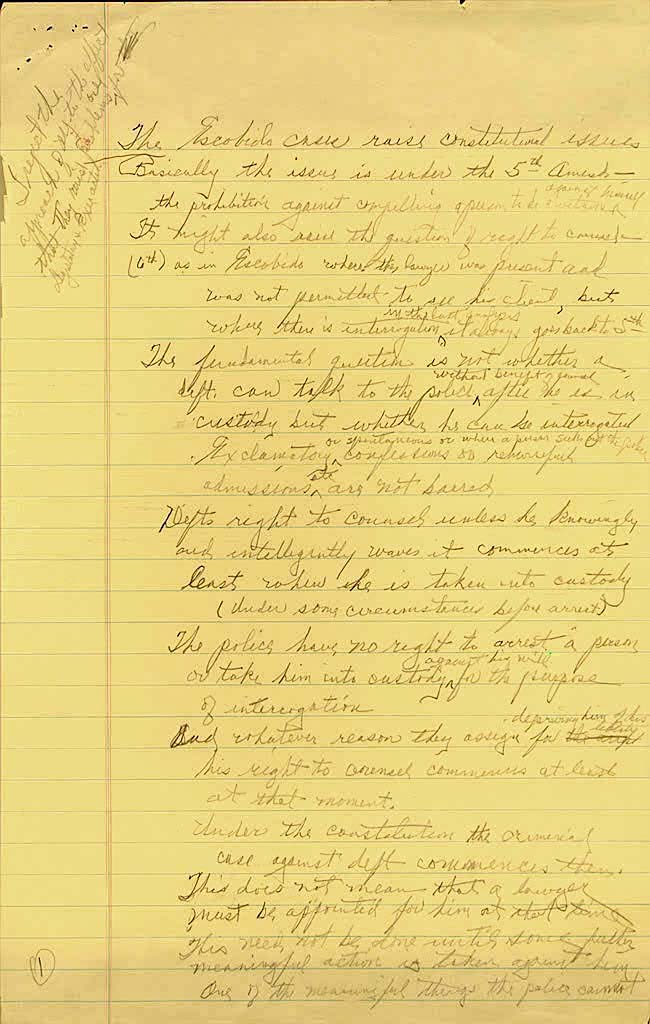 I reject the
approach
that they must
The Escobido cases raise constitutional issues
Basically the issue is under the 5th Amend—
the prohibition against compelling a person to be a witness against himself
It might also raise the question of right to counsel—
(6th) as in Escobido where the lawyer was present and
was not permitted to see his client, but
where there is interrogation in the last analysis it always goes back to 5th
The fundamental question is not whether a
deft. can talk to the police without benefit of counsel after he is in
custody but whether he can be interrogated
Exclamatory or spontaneous or where a person seeks out the police
confessions or remorseful
admissions etc are not barred
Defts right to counsel unless he knowingly
and intellegently waves it commences at
least when he is taken into custody
(Under some circumstances before arrest)
The police have no right to arrest a person
or take him into custody against his will for the purpose
of interrogation
And whatever reason they assign for depriving him of his liberty
his right to counsel commences at least
at that moment.
Under the constitution the criminal
case against deft commences then.
This does not mean that a lawyer
must be appointed for him at that time
This need not be done until some further
meaningful action is taken against him
One of the meaningful things the police cannot
1